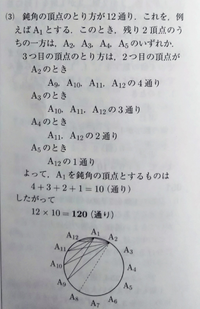 (3) 鈍角の頂点のとり方が12通り，これを，例
えばA₁とする．このとき，残り2頂点のう
ちの一方は，A₂，A₃，A₄，A₅のいずれか．
3つ目の頂点のとり方は，2つ目の頂点が
A₂のとき
A₉，A₁₀，A₁₁，A₁₂の4通り
A₃のとき
A₁₀，A₁₁，A₁₂の3通り
A₄のとき
A₁₁，A₁₂の2通り
A₅のとき
A₁₂の1通り
よって，A₁を鈍角の頂点とするものは
4＋3＋2＋1＝10（通り）
したがって
12×10＝120（通り）
A₁
A₁₂ A₂
A₁₁ A₃
A₁₀ A₄
A₉ A₅
A₈ A₆
A₇